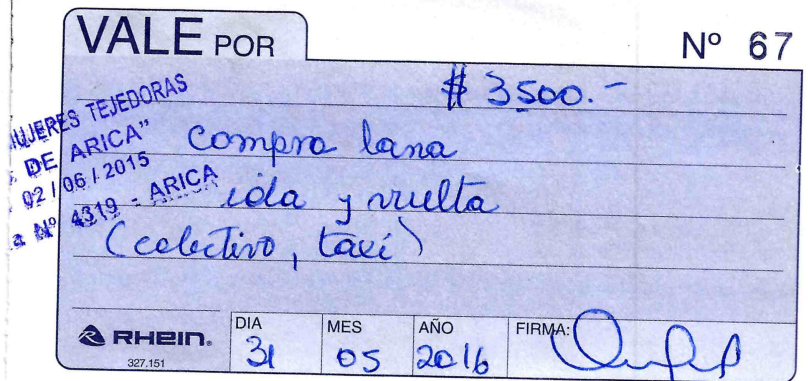 VALE POR
Nº 67
$ 3500.-
MUJERES TEJEDORAS
DE ARICA"
02/06/2015
Nº 4319 - ARICA
compra lana
ida y vuelta
(colectivo, taxi)
RHEIN.
327.151
DIA 31
MES 05
AÑO 2016
FIRMA: